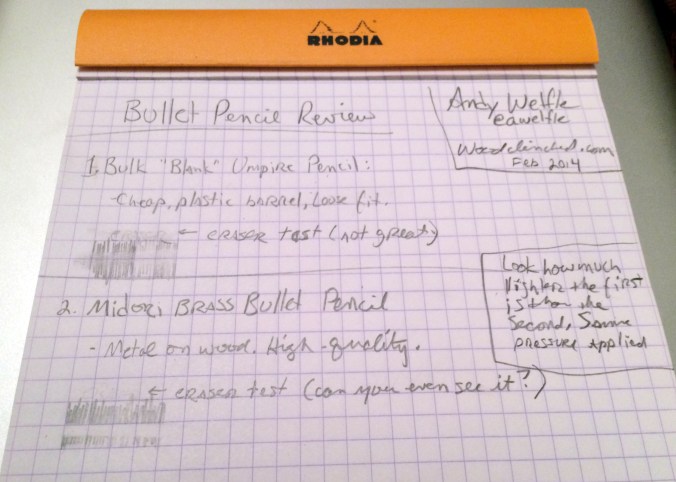 RHODIA
Bullet Pencil Review
Andy Welfle
eawelfle
Woodclinched.com
Feb 2014
1. Bulk "Blank" Umpire Pencil:
- Cheap, plastic barrel, loose fit.
← ERASER test (not great)
2. Midori BRASS Bullet Pencil
- Metal on wood. High-quality.
← ERASER test (can you even see it?)
Look how much
lighter the first
is than the
second, Same
pressure applied